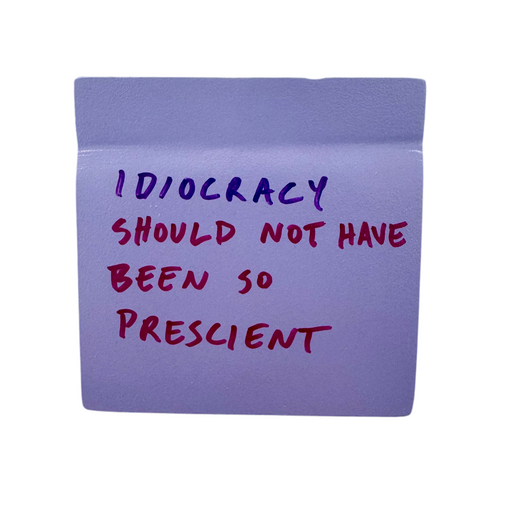 IDIOCRACY
SHOULD NOT HAVE
BEEN SO
PRESCIENT